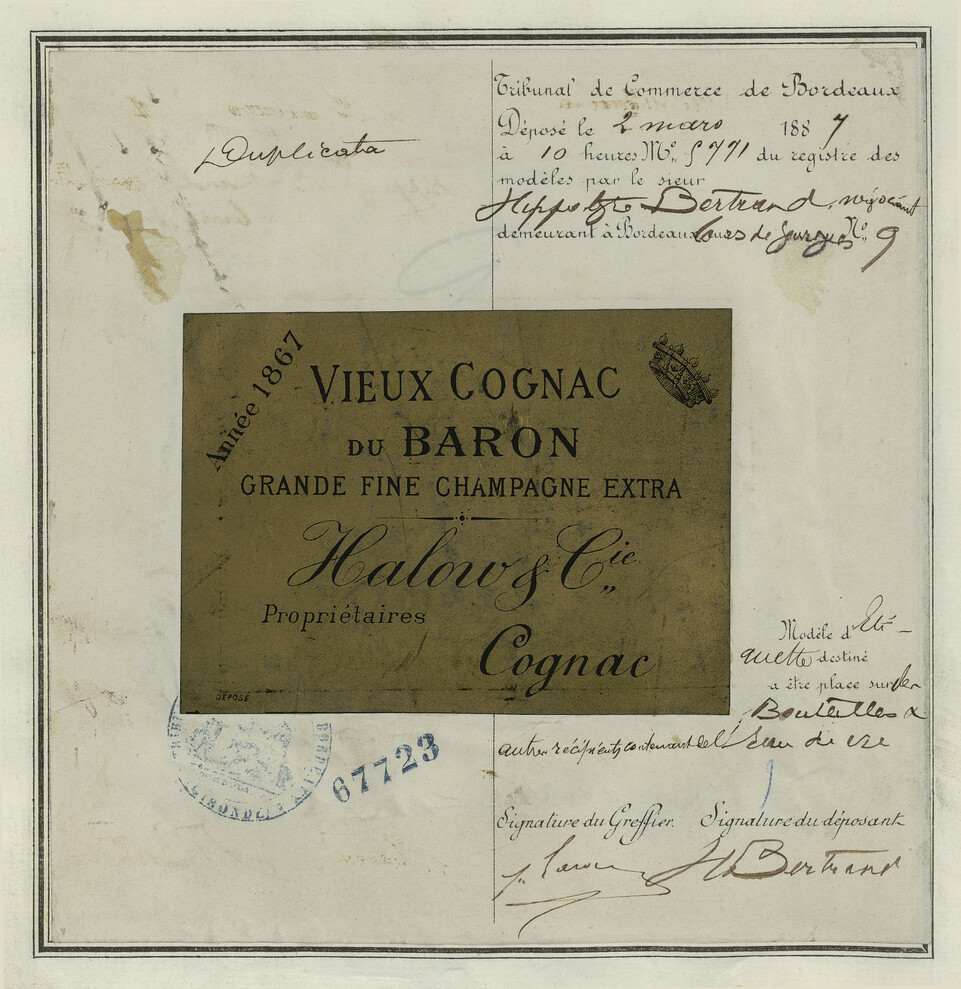 Duplicata
Tribunal de Commerce de Bordeaux
Déposé le 2 mars 1887
à 10 heures No. 5771 du registre des
modèles par le sieur
Hippolyte Bertrand, négociant
demeurant à Bordeaux Cours de Gourgues No. 9
Année 1867
VIEUX COGNAC
DU BARON
GRANDE FINE CHAMPAGNE EXTRA
Halow & Cie
Propriétaires
Cognac
DÉPOSÉ
Modèle d'Eti-
quette destiné
a être place sur des
Bouteilles &
autres récipients contenant de l'Eau de vie
BORDEAUX
GIRONDE
67723
Signature du Greffier. Signature du déposant
H Bertrand